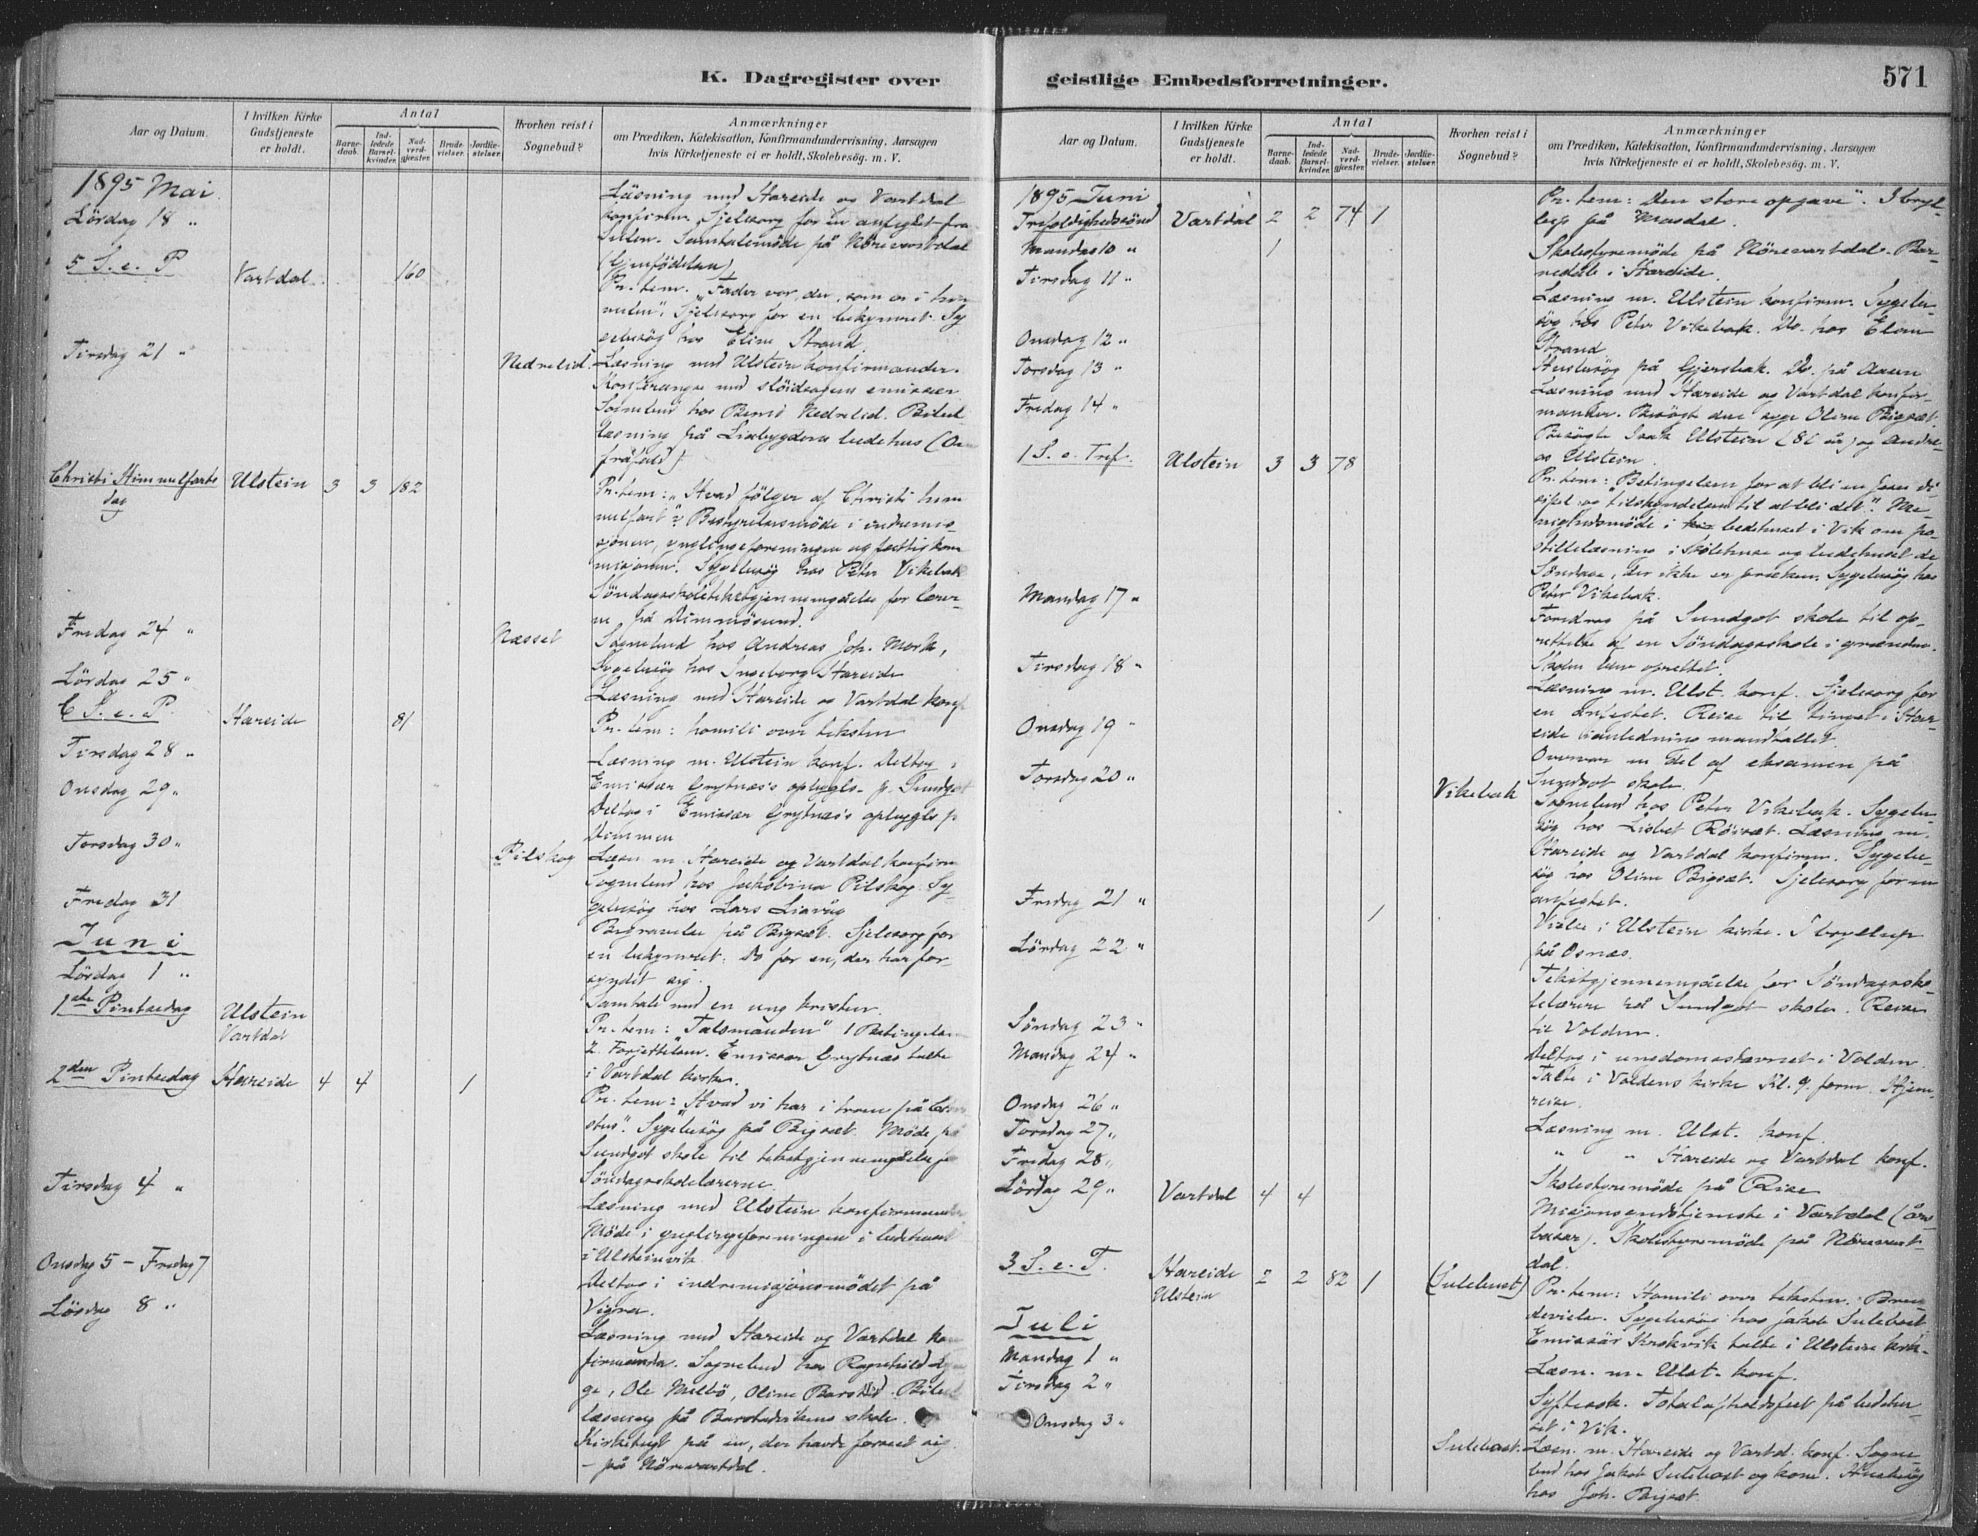 K. Dagregister over
Aar og Datum.
I hvilken Kirke Gudstjeneste er holdt.
Antal
Barnedaab.
Indledede Barselkvinder.
Nadverdgjester.
Brudevielser.
Jordfæstelser.
Hvorhen reist i Sognebud?
Anmærkninger
om Prædiken, Katekisation, Konfirmandundervisning, Aarsagen
hvis Kirketjeneste ei er holdt, Skolebesög. m. V.
1895 Mai
Lördag 18 "
Læsning med Hareide og Vartdal
konfirm. Sjelesorg for en anfegtet fra
Sulen. Samtalemöde på Nörevartdal
(Gjenfödelsen)
5 S. e. P Vartdal 160
Pr. tem. "Fader vor, du, som er i him
melen". Sjelesorg for en bekymret. Sy
gebesög hos Eline Strand.
Tirsdag 21 " Nedrelid. Læsning med Ulstein konfirmander.
Konferanse med emissær
Sognebud hos Nedrelid. Bibel
læsning på bedehus
Christi Himmelfarts Ulstein 3 3 182
dag
Pr. tem: "Hvad fölger af Christi him
melfart"? Bestyrelsesmöde i indremis
sjonen, ynglingeforeningen og
Sygebesög hos Peter Vikebak
Söndagsskoletekstgjennemgåelse for lærer
ne på Dimmösund.
Fredag 24 " Næsset Sognebud hos Andreas Joh. Mork,
Sygebesög hos Ingeborg Hareide
Lördag 25 "
Læsning med Hareide og Vartdal konf
6 S. e. P. Hareide 81
Pr. tem: homili over teksten
Tirsdag 28 "
Læsning m. Ulstein konf. Deltog i
Onsdag 29 "
Emissær Grytnæs's opbygls. p. Sundgot
Deltog i Emissær Grytnæs's opbygls p
Dimmen
Torsdag 30 " Pilskog Læsn. m. Hareide og Vartdal konfirm
Sognebud hos Jakobina Pilskog. Sy
gebesög hos Lars Liavåg
Fredag 31
Begravelse på Bigset. Sjelesorg for
en bekymret. Do for en, der har for-
syndet sig.
Juni
Lördag 1 "
Samtale med en ung kristen.
1ste Pintsedag Ulstein
Vartdal
Pr. tem: "Talsmanden" 1 Betingelsen
2. Forjettelsen. Emissær Grytnæs talte
i Vartdal kirke.
2den Pintsedag Hareide 4 4 1
Pr. tem: "Hvad vi har i troen på Chri
stus". Sygebesög på Bigset. Möde på
Sundgot skole til tekstgjennemgåelse for
Söndagsskolelærerne.
Tirsdag 4 "
Læsning med Ulstein konfirmander
Möde i ynglingeforeningen i bedehuset
i Ulsteinvik
Onsdag 5 - Fredag 7
Deltog i indremisjonsmödet på
Vigra.
Lördag 8 "
Læsning med Hareide og Vartdal kon
firmander. Sognebud hos Ragnhild
Ole Melbö, Oline Barstad. Bibel
læsning på Barstadvikens skole.
Kirketugt på en, der havde forseet sig
- på Nörevartdal.
geistlige Embedsforretninger.
571
Aar og Datum.
I hvilken Kirke Gudstjeneste er holdt.
Antal
Barnedaab.
Indledede Barselkvinder.
Nadverdgjester.
Brudevielser.
Jordfæstelser.
Hvorhen reist i Sognebud?
Anmærkninger
om Prædiken, Katekisation, Konfirmandundervisning, Aarsagen
hvis Kirketjeneste ei er holdt, Skolebesög. m. V.
1895 Juni
Trefoldighedssönd Vartdal 2 2 74 1
Pr. tem: "Den store opgave". I bryl-
lup på Masdal.
Mandag 10 " 1
Skolestyremöde på Nörevartdal. Bar-
nedåb i Hareide.
Tirsdag 11 "
Læsning m. Ulstein konfirm. Sygebe-
sög hos Peter Vikebak. Do. hos Elen
Strand
Onsdag 12 "
Husbesög på Gjersbak. Do. på Aasen
Torsdag 13 "
Læsning med Hareide og Vartdal konfir-
mander. Besögt den syge Oline Bigset.
Fredag 14 "
Besögte Isak Ulstein (81 år) og Andre-
as Ulstein.
1 S. e. Tref. Ulstein 3 3 78
Pr. tem: "Betingelsen for at bli en Jesu di-
sipel og tilskyndelsen til at bli det". Me-
nighedsmöde i bedehuset i Vik om po-
stillelæsning i Skolehuse og bedehuset de
Söndage, der ikke er præken. Sygebesög hos
Peter Vikebak.
Mandag 17 "
Foredrag på Sundgot skole til op-
rettelse af en Söndagsskole i grænden.
Skolen blev oprettet.
Tirsdag 18 "
Læsning m. Ulst. konf. Sjelesorg for
en anfegtet. Reise til tinget i Har-
eide i anledning mandtallet.
Onsdag 19 "
Overvar en del af eksamen på
Sundgot skole.
Torsdag 20 " Vikebak
Sognebud hos Peter Vikebak. Sygebe-
sög hos Lisbet Röiset. Læsning m.
Hareide og Vartdal konfirm. Sygebe-
sög hos Oline Bigset. Sjelesorg for en
anfegtet.
Fredag 21 " 1
Vielse i Ulstein kirke. I bryllup
på Osnes.
Lördag 22 "
Tekstgjennemgåelse for Söndagssko-
lelærere på Sundgot skole. Reise
til Volden.
Söndag 23 "
Deltog i ungdomsstevnet i Volden.
Mandag 24 "
Talte i Voldens kirke Kl. 9. form. Hjem-
reise.
Onsdag 26 "
Læsning m. Ulst. konf.
Torsdag 27 "
" " Hareide og Vartdal konf.
Fredag 28 "
Skolestyremöde på Reise
Lördag 29 " Vartdal 4 4
Misjonsgudstjeneste i Vartdal (års-
basar). Skolestyremöde på Nörevart-
dal.
3 S. e. T. Hareide 2 2 82 1 (Sulebust)
Ulstein
Pr. tem: Homili over teksten. Bru-
devielse. Sygebesög hos Jakob Sulebust
Emissær Krokvik talte i Ulstein kirk-
Juli
Mandag 1 "
Læsn. m. Ulst. konf.
Tirsdag 2 "
Totalafholdsfest på bedehu-
set i Vik.
Onsdag 3 " Sulebust.
Læsn. m. Hareide og Vartd. konf. Sogne-
bud hos Jakob Sulebust og kone. Husbesög
hos Joh. Bigset.